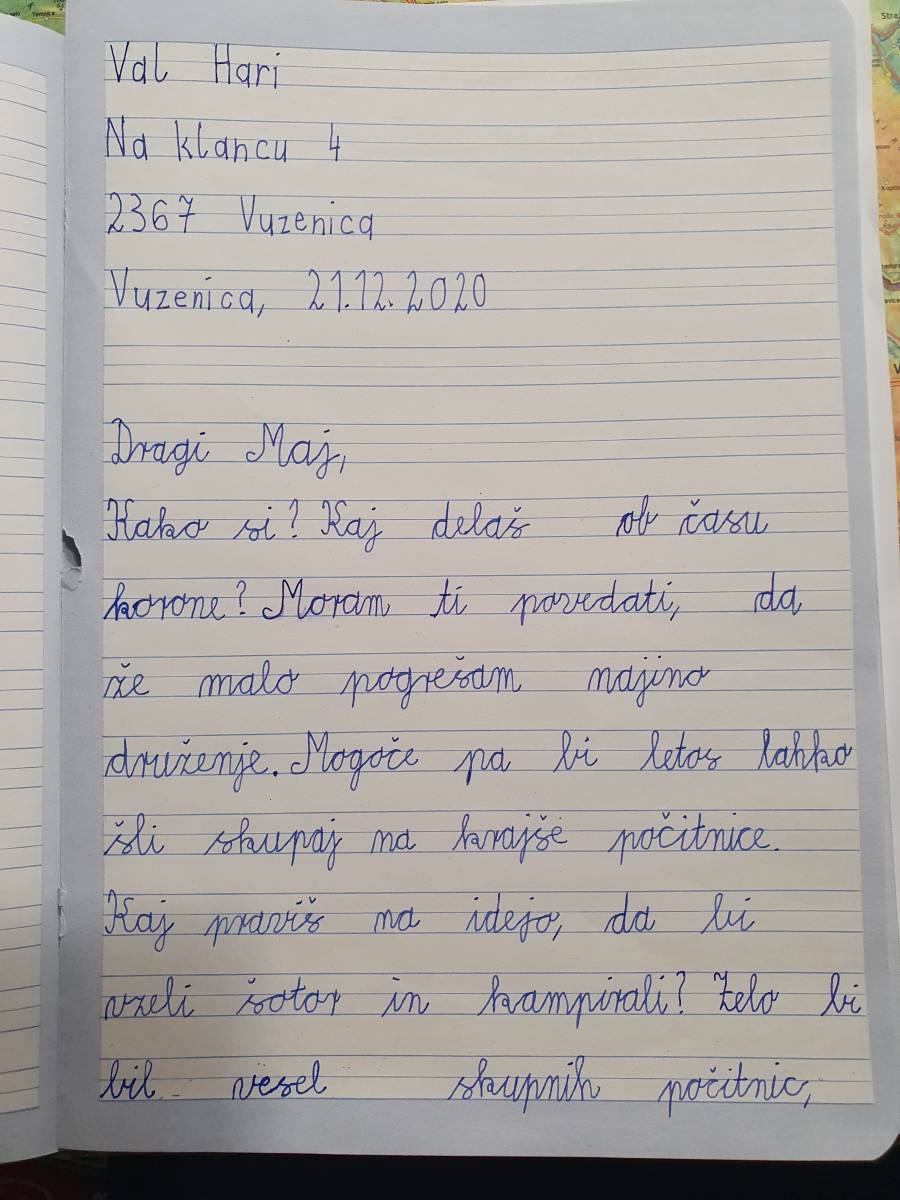 Val Hari
Na klancu 4
2367 Vuzenica
Vuzenica, 21.12.2020
Dragi Maj,
Kako si? Kaj delaš ob času
korone? Moram ti povedati, da
že malo pogrešam najino
druženje. Mogoče pa bi letos lahko
šli skupaj na krajše počitnice.
Kaj praviš na idejo, da bi
vzeli šotor in kampirali? Zelo bi
bil vesel skupnih počitnic,